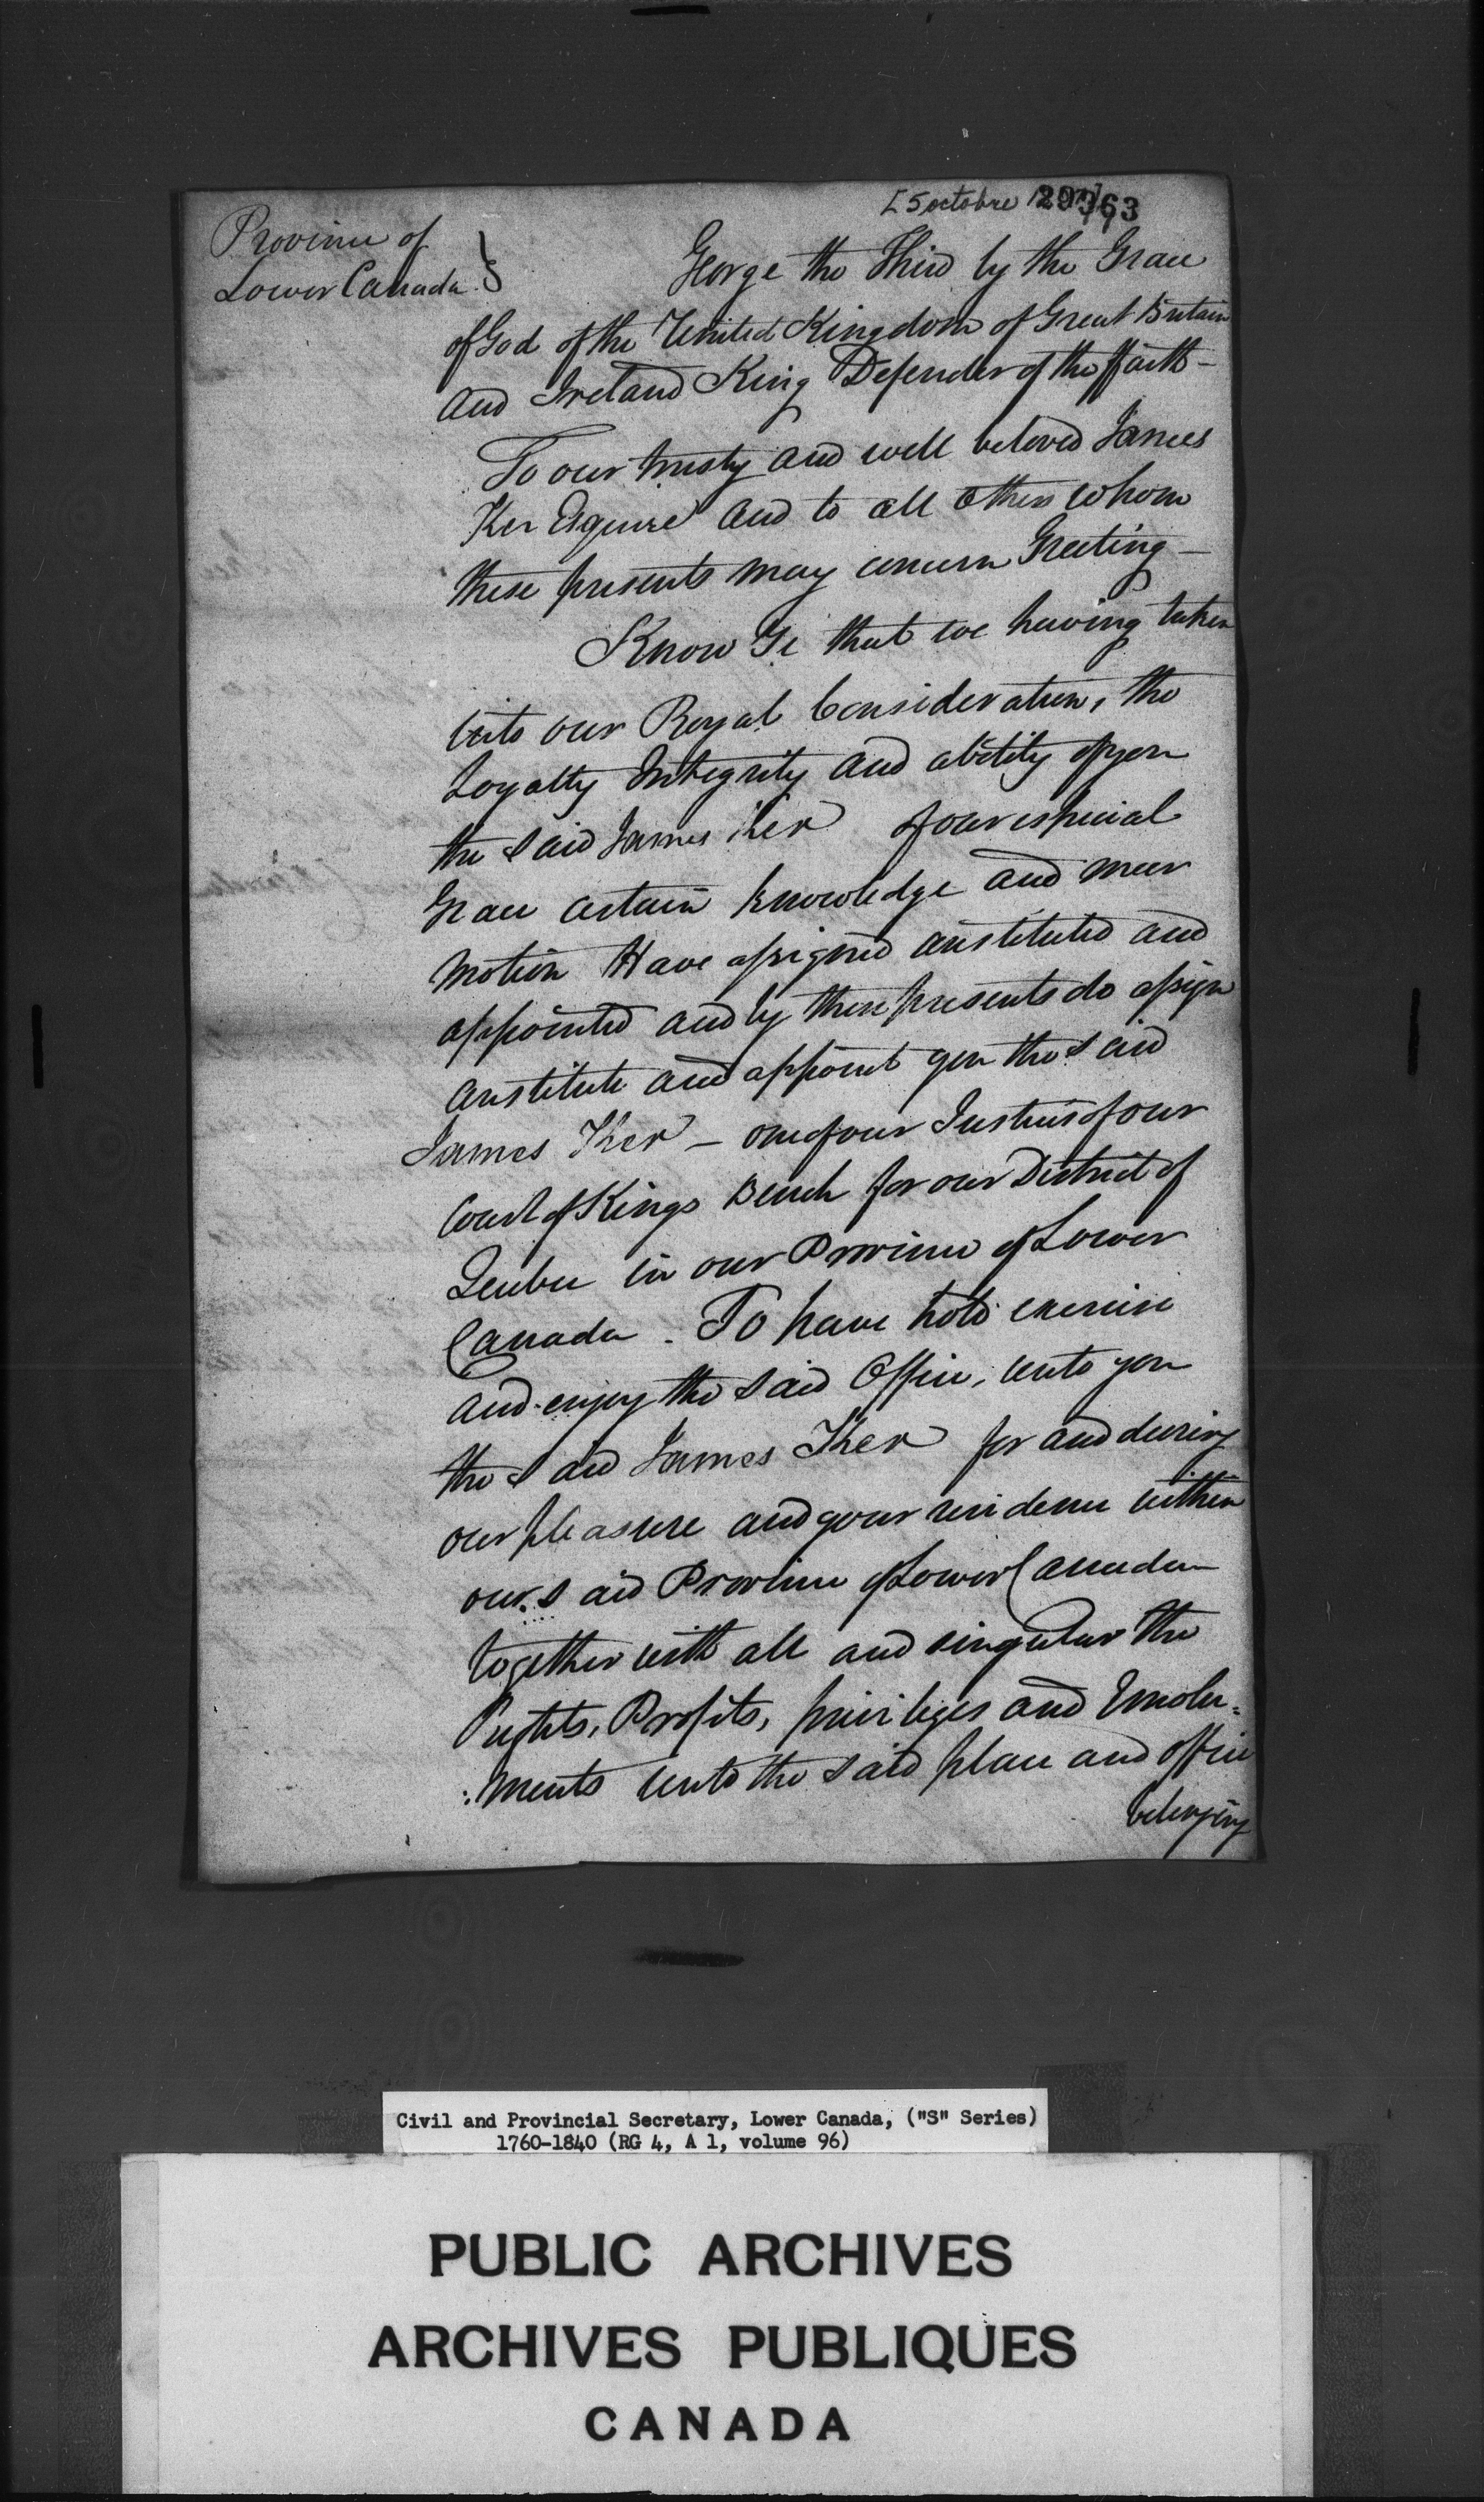 [5 octobre 29363
Province of
Lower Canada }
George the Third by the Grace
of God of the United Kingdom of Great Britain
and Ireland King Defender of the ffaith -
To our trusty and well beloved James
Ker Esquire and to all others whom
these presents may concern Greeting -
Know Ye that we having taken
into our Royal Consideration, the
Loyalty Integrity and ability of you
the said James Ker of our especial
Grace certain knowledge and meer
motion Have assigned constituted and
appointed and by these presents do assign
constitute and appoint you the said
James Ker - one of our Justices of our
Court of Kings Bench for our District of
Quebec in our Province of Lower
Canada. To have hold exercise
and enjoy the said Office, unto you
the said James Ker for and during
our pleasure and your residence within
our said Province of Lower Canada
together with all and singular the
Rights, Profits, privileges and Emolu=
:ments unto the said place and office
belonging
Civil and Provincial Secretary, Lower Canada, ("S" Series)
1760-1840 (RG 4, A 1, volume 96)
PUBLIC ARCHIVES
ARCHIVES PUBLIQUES
CANADA